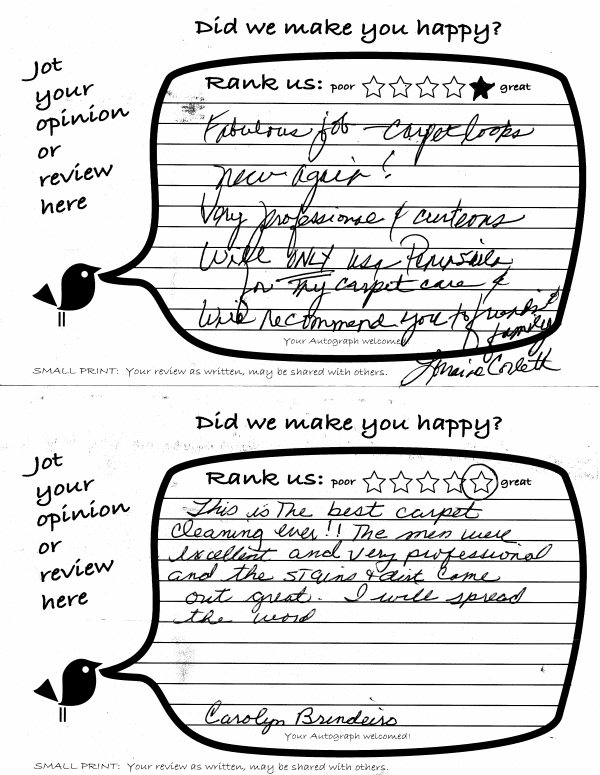 Did we make you happy?
Jot
your
opinion
or
review
here
Rank us: poor great
Fabulous job - carpet looks
new again!
Very professional & curteous
Will ONLY use Peninsula
for my carpet care &
Will recommend you to friends &
family
Your Autograph welcomed!
Lorraine Corlett
SMALL PRINT: Your review as written, may be shared with others.
Did we make you happy?
Jot
your
opinion
or
review
here
Rank us: poor great
This is The best carpet
cleaning ever!! The men were
excellent and very professional
and the stains & dirt come
out great. I will spread
the word
Carolyn Brindeiro
Your Autograph welcomed!
SMALL PRINT: Your review as written, may be shared with others.